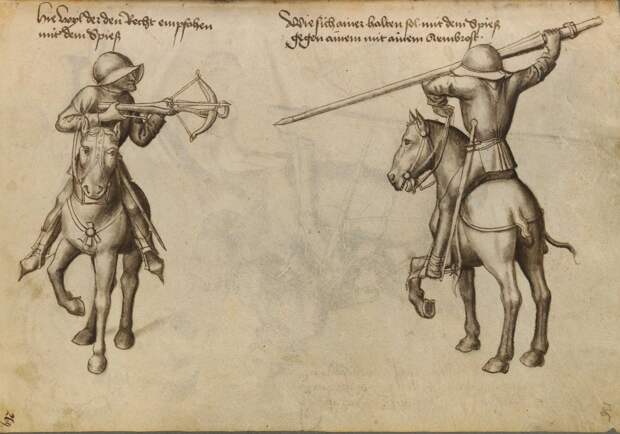 hie Wyl der den Recht empfahen
mit dem Spieß
Wie sich ainer halten sol mit dem Spieß
gegen ainem mit ainem Armbrost.